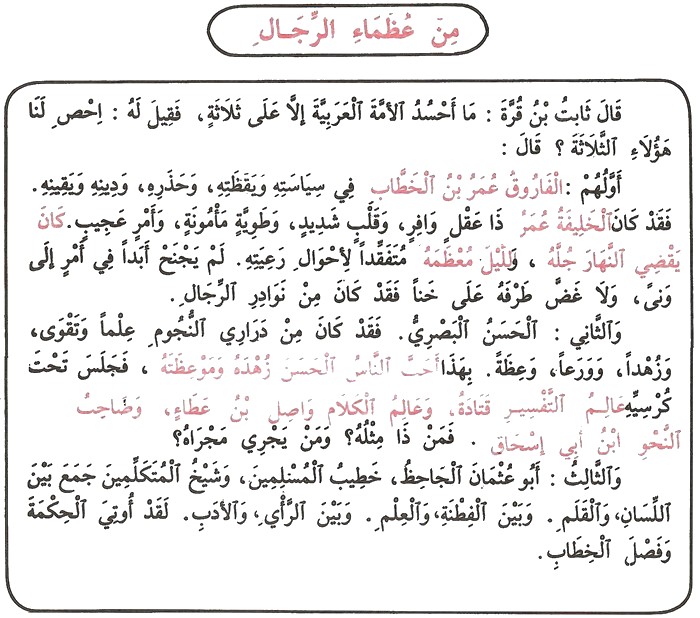 مِنْ عُظَمَاءِ الرِّجَـالِ
قَالَ ثَابِتُ بْنُ قُرَّةَ : مَا أَحْسُدُ ٱلأُمَّةَ ٱلْعَرَبِيَّةَ إِلَّا عَلَى ثَلَاثَةٍ، فَقِيلَ لَهُ : اِحْصِ لَنَا
هَؤُلَاءِ ٱلثَّلَاثَةَ ؟ قَالَ :
أَوَّلُهُمْ : ٱلْفَارُوقُ عُمَرُ بْنُ ٱلْخَطَّابِ فِي سِيَاسَتِهِ وَيَقَظَتِهِ، وَحَذَرِهِ، وَدِينِهِ وَيَقِينِهِ.
فَقَدْ كَانَ ٱلْخَلِيفَةُ عُمَرُ ذَا عَقْلٍ وَافِرٍ، وَقَلْبٍ شَدِيدٍ، وَطَوِيَّةٍ مَأْمُونَةٍ، وَأَمْرٍ عَجِيبٍ. كَانَ
يَقْضِي ٱلنَّهَارَ جُلَّهُ ، وَٱللَّيْلَ مُعْظَمَهُ مُتَفَقِّداً لِأَحْوَالِ رَعِيَتِهِ. لَمْ يَجْنَحْ أَبَداً فِي أَمْرٍ إِلَى
وَنىً، وَلَا غَضَّ طَرْفَهُ عَلَى خَناً فَقَدْ كَانَ مِنْ نَوَادِرِ ٱلرِّجَالِ.
وَٱلثَّانِي : ٱلْحَسَنُ ٱلْبَصْرِيُّ. فَقَدْ كَانَ مِنْ دَرَارِي ٱلنُّجُومِ عِلْماً وَتَقْوَى،
وَزُهْداً، وَوَرَعاً، وَعِظَةً. بِهَذَا أَحَبَّ ٱلنَّاسُ ٱلْحَسَنَ زُهْدَهُ وَمَوْعِظَتَهُ ، فَجَلَسَ تَحْتَ
كُرْسِيِّهِ عَالِـمُ ٱلتَّفْسِيـرِ قَتَادَةُ، وَعَالِمُ ٱلْكَلَامِ وَاصِلِ بْنُ عَطَاءٍ، وَصَاحِبُ
ٱلنَّحْوِ ٱبْنُ أَبِي إِسْحَاقَ . فَمَنْ ذَا مِثْلُهُ؟ وَمَنْ يَجْرِي مَجْرَاهُ؟
وَٱلثَّالِثُ : أَبُو عُثْمَانَ ٱلْجَاحِظُ، خَطِيبُ ٱلْمُسْلِمِينَ، وَشَيْخُ ٱلْمُتَكَلِّمِينَ جَمَعَ بَيْنَ
ٱللِّسَانِ، وَٱلْقَلَمِ. وَبَيْنَ ٱلْفِطْنَةِ، وَٱلْعِلْمِ. وَبَيْنَ ٱلرَّأْيِ، وَٱلأَدَبِ. لَقَدْ أُوتِيَ ٱلْحِكْمَةَ
وَفَصْلَ ٱلْخِطَابِ.